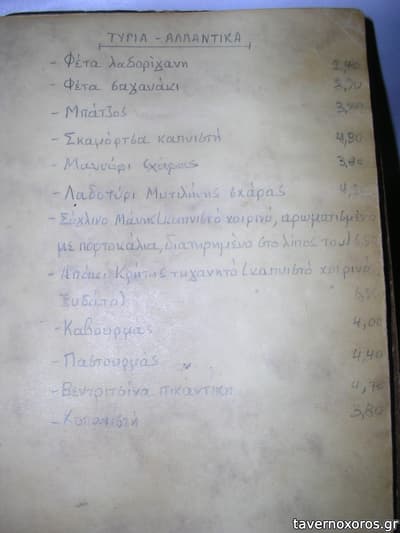 ΤΥΡΙΑ - ΑΛΛΑΝΤΙΚΑ
- Φέτα λαδορίγανη 2,40
- Φέτα σαγανάκι 3,20
- Μπάτζος
- Σκαμόρτσα καπνιστή 4,30
- Μανούρι σχάρας 3,40
- Λαδοτύρι Μυτιλήνης σχάρας
- Σύγλινο Μάνης (καπνιστό χοιρινό, αρωματισμένο
με πορτοκάλια, διατηρημένο στο λίπος του)
- Απάκι Κρήτης τηγανητό (καπνιστό χοιρινό,
ξυδάτο)
- Καβουρμάς 4,00
- Παστουρμάς 4,40
- Βεντρίτσινα πικάντικη 4,70
- Κοπανιστή 3,80
tavernoxoros.gr